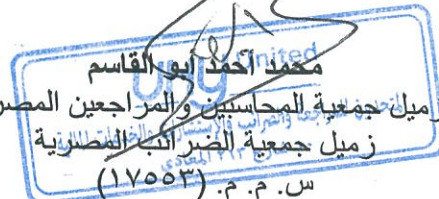 United
محمد أحمد أبو القاسم
زميل جمعية المحاسبين والمراجعين المصر
زميل جمعية الضرائب المصرية
س. م. م. (١٧٥٥٣)